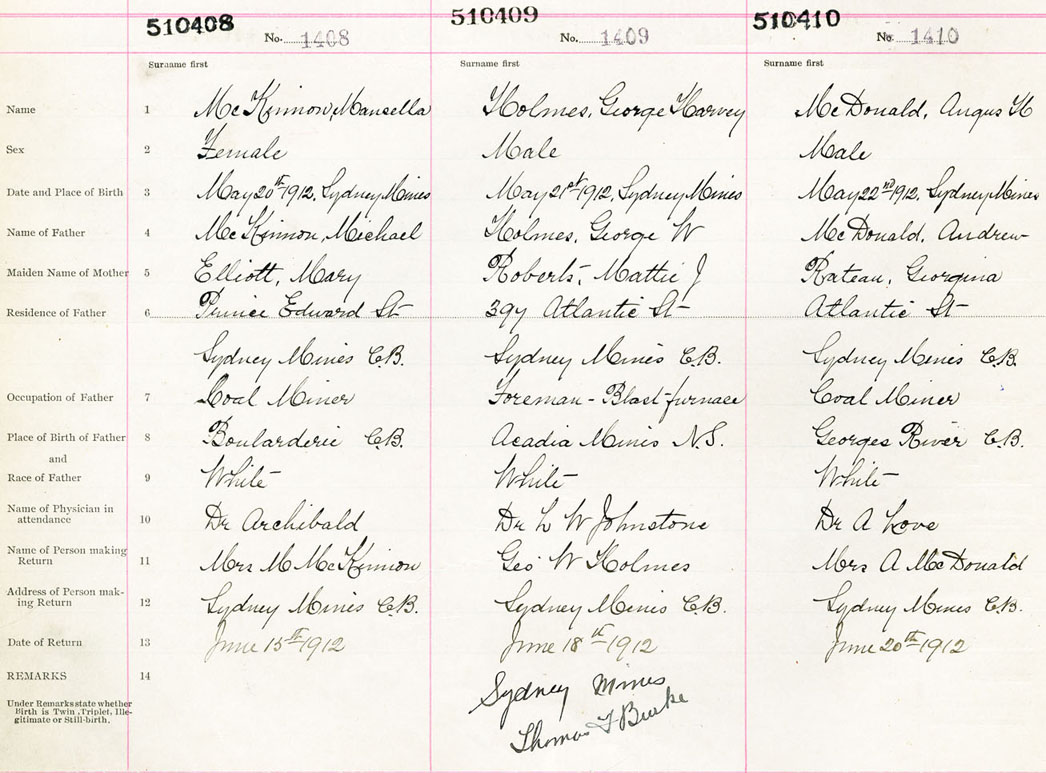 510408 510409 510410
No. 1408 No. 1409 No. 1410
Surname first Surname first Surname first
Name 1 McKinnon, Mansella Holmes, George Harvey McDonald, Angus H
Sex 2 Female Male Male
Date and Place of Birth 3 May 20th 1912, Sydney Mines May 21st 1912, Sydney Mines May 22nd 1912, Sydney Mines
Name of Father 4 McKinnon, Michael Holmes, George W McDonald, Andrew
Maiden Name of Mother 5 Elliott, Mary Roberts, Mattie J Rateau, Georgina
Residence of Father 6 Prince Edward St 397 Atlantic St Atlantic St
Sydney Mines C.B. Sydney Mines C.B. Sydney Mines C.B.
Occupation of Father 7 Coal Miner Foreman - Blast-furnace Coal Miner
Place of Birth of Father 8 Boularderie C.B. Acadia Mines N.S. Georges River C.B.
and
Race of Father 9 White White White
Name of Physician in
attendance 10 Dr Archibald Dr L W Johnstone Dr A Love
Name of Person making
Return 11 Mrs M McKinnon Geo W Holmes Mrs A McDonald
Address of Person mak-
ing Return 12 Sydney Mines C.B. Sydney Mines C.B. Sydney Mines C.B.
Date of Return 13 June 15th 1912 June 18th 1912 June 20th 1912
REMARKS 14
Sydney Mines
Under Remarks state whether
Birth is Twin, Triplet, Ille-
gitimate or Still-birth.
Thomas F Burke